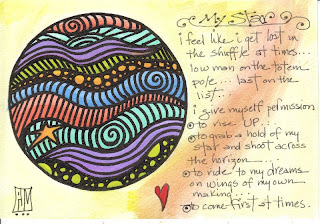 My Star
i feel like i get lost in
the shuffle at times...
low man on the totem
pole... last on the
list...
i give myself permission
to rise UP...
to grab a hold of my
star and shoot across
the horizon...
to ride to my dreams
on wings of my own
making...
to come first at times.